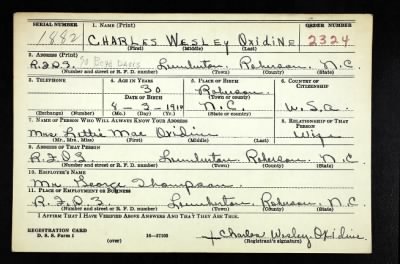 SERIAL NUMBER 1. NAME (Print) ORDER NUMBER
1882 CHARLES WESLEY OXIDINE 2324
(First) (Middle) (Last)
2. ADDRESS (Print)
R.F.D.3. Lumberton, Robeson, N.C.
(Number and street or R. F. D. number) (Town) (County) (State)
3. TELEPHONE 4. AGE IN YEARS 5. PLACE OF BIRTH 6. COUNTRY OF CITIZENSHIP
30 Robeson
DATE OF BIRTH (Town or county)
8-3-1910 N.C. U.S.A.
(Exchange) (Number) (Mo.) (Day) (Yr.) (State or country)
7. NAME OF PERSON WHO WILL ALWAYS KNOW YOUR ADDRESS 8. RELATIONSHIP OF THAT PERSON
Mrs. Lettie Mae Oxidine Wife
(Mr., Mrs., Miss) (First) (Middle) (Last)
9. ADDRESS OF THAT PERSON
R.F.D.3. Lumberton, Robeson, N.C.
(Number and street or R. F. D. number) (Town) (County) (State)
10. EMPLOYER'S NAME
Mr. George Thompson.
11. PLACE OF EMPLOYMENT OR BUSINESS
R.F.D.3. Lumberton, Robeson, N.C.
(Number and street or R. F. D. number) (Town) (County) (State)
I AFFIRM THAT I HAVE VERIFIED ABOVE ANSWERS AND THAT THEY ARE TRUE.
REGISTRATION CARD
D. S. S. Form 1 16-17105 Charles Wesley Oxidine
(over) (Registrant's signature)